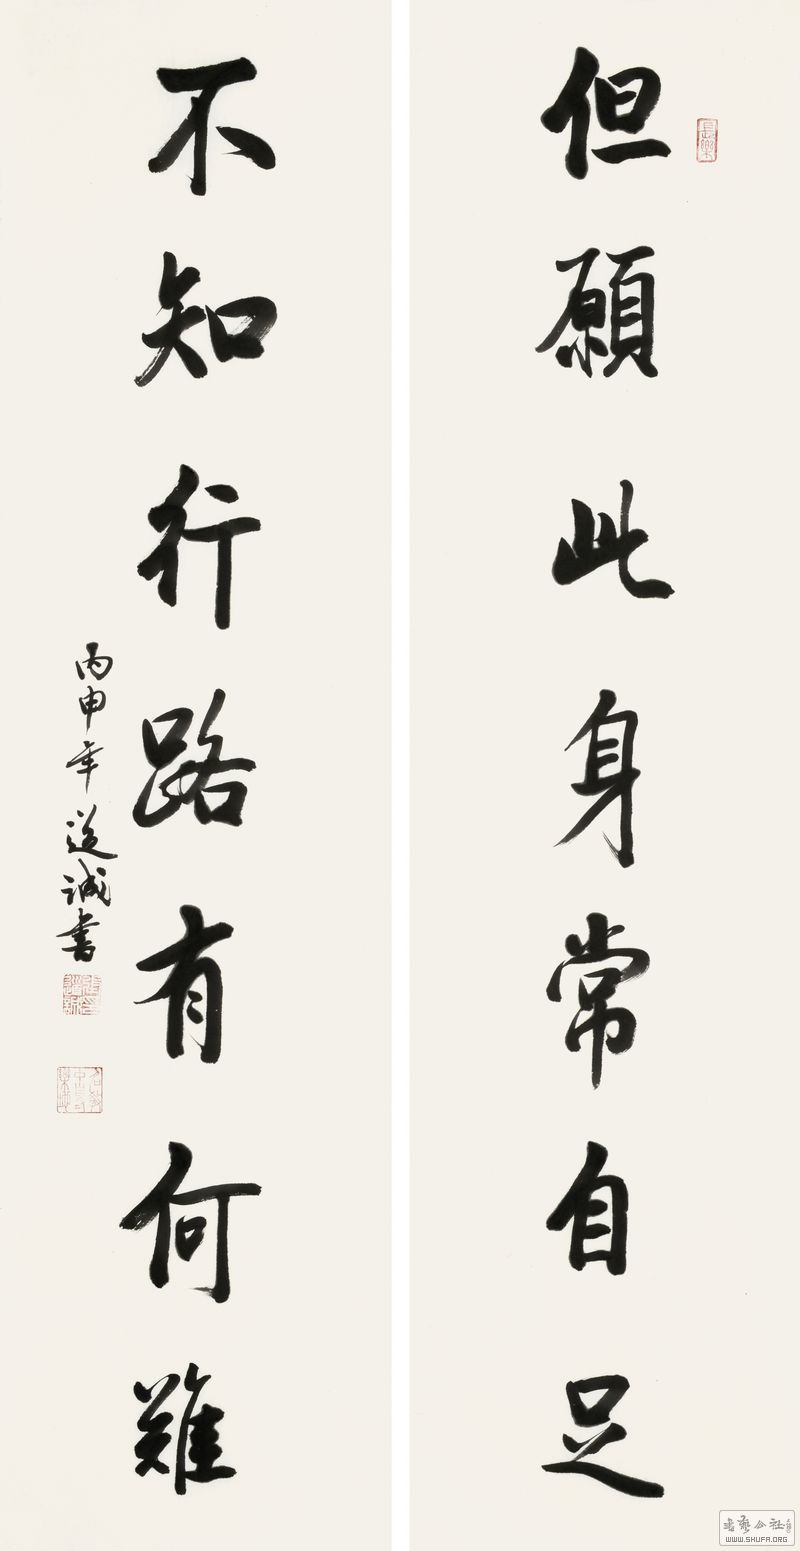 但願此身常自足
不知行路有何難
丙申年道诚書
長樂
書藝公社
WWW.SHUFA.ORG